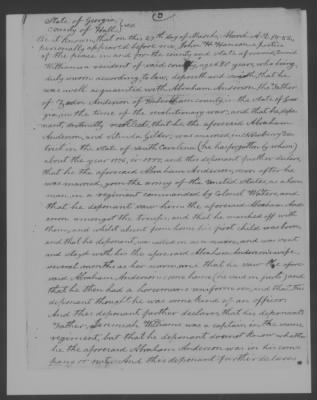 State of Georgia,
County of Hall.
Be it known, that on this 27th day of March,
personally appeared before me, John H. a justice
of the peace in and for the county and state aforesaid,
Williams a resident of said county, aged 85 years, who being
duly sworn according to law, deposeth and saith, that he
was well acquainted with Abraham Anderson, the father
of Anderson of Habersham county in the state of Geor-
gia, in the time of the revolutionary war, and that he depo-
nent, distinctly that, that he the aforesaid Abraham
Anderson, and was married in
in the state of South Carolina (he has forgotten by whom)
about the year 1776, or 1777, and this deponent further declares,
that he the aforesaid Abraham Anderson, soon after he
was married, join the army of the United States, as a horse
man in a regiment commanded by Colonel Waters, and
that he deponent saw him the aforesaid Abraham And-
erson amongst the troops, and that he marched off with
them, and whilst absent from home his first child was born,
and that he deponent, was called on as a nurse, and was sent
and stayed with her the aforesaid Abraham Anderson's wife
several months as her nurse, and that he saw the afore
said Abraham Anderson come home (he said on furlo) and
that he then had a horseman's uniform on, and that this
deponent thought he was some kind of an officer.
And this deponent further declares, that his deponent's
Father, Jeremiah Williams was a captain in the same
regiment, but that he deponent does not know whether
he the aforesaid Abraham Anderson was in his com-
pany or not. And this deponent further declares